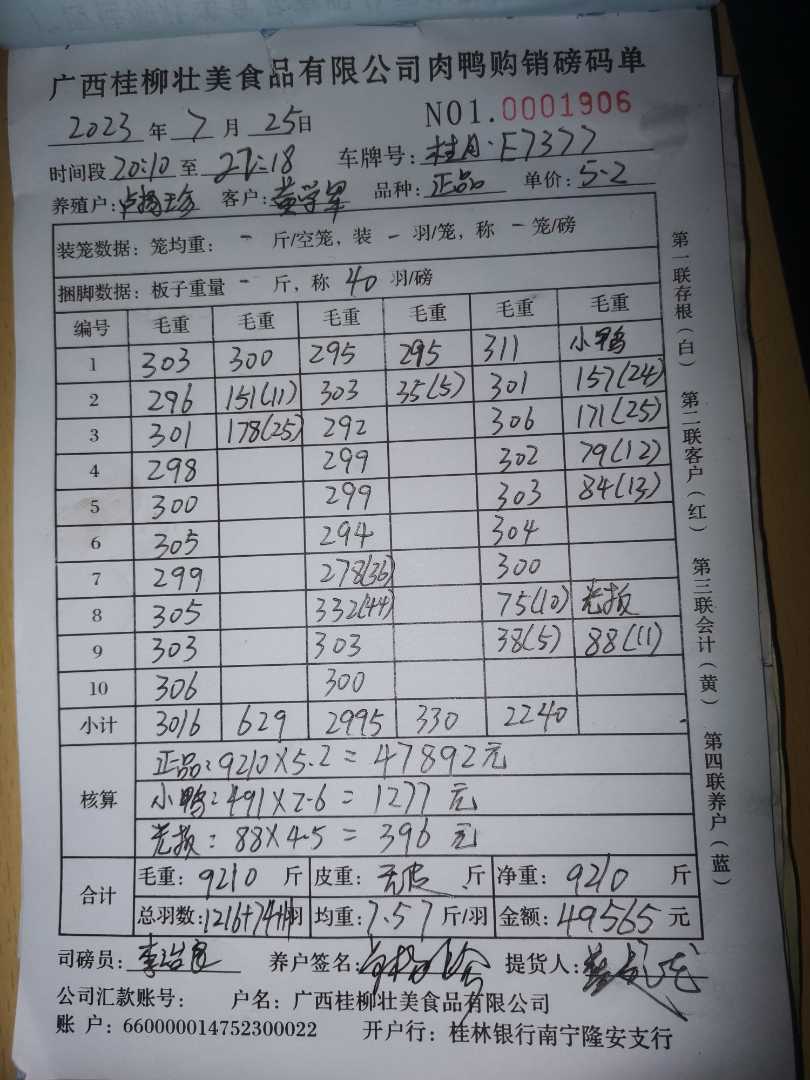 广西桂柳壮美食品有限公司肉鸭购销磅码单
2023 年 7 月 25日 NO1.0001906
时间段 20:10 至 21:18 车牌号: 桂A·E7377
养殖户: 客户: 黄学军 品种: 正品 单价: 5.2
装笼数据: 笼均重: - 斤/空笼, 装 - 羽/笼, 称 - 笼/磅
捆脚数据: 板子重量 - 斤, 称 40 羽/磅
编号 毛重 毛重 毛重 毛重 毛重 毛重
1 303 300 295 295 311 小鸭
2 296 151(11) 303 35(5) 301 157(24)
3 301 178(25) 292 306 171(25)
4 298 299 302 79(12)
5 300 299 303 84(13)
6 305 294 304
7 299 278(36) 300
8 305 332(44) 75(10) 光板
9 303 303 38(5) 88(11)
10 306 300
小计 3016 629 2995 330 2240
核算
正品: 9210×5.2 = 47892元
小鸭: 491×2.6 = 1277 元
光板: 88×4.5 = 396 元
合计
毛重: 9210 斤 皮重: 斤 净重: 9210 斤
总羽数: 1216+74+11羽 均重: 7.57 斤/羽 金额: 49565 元
司磅员: 养户签名: 提货人:
公司汇款账号: 户名: 广西桂柳壮美食品有限公司
账 户: 660000014752300022 开户行: 桂林银行南宁隆安支行
第一联存根(白) 第二联客户(红) 第三联会计(黄) 第四联养户(蓝)